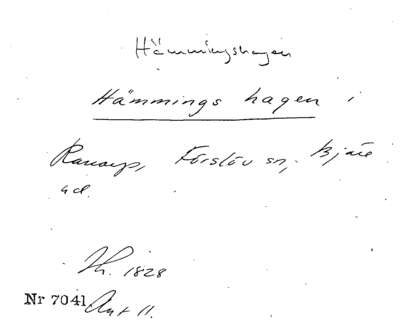 Hämmingshagen
Hämmings hagen i
Ranarp, Förslöv sn, Bjäre
hd.
Th. 1828
Nr 7041 Akt 11.